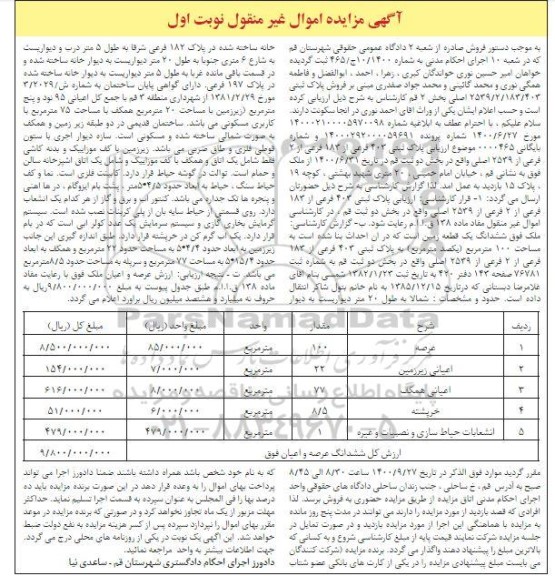 آگهی مزایده اموال غیر منقول نوبت اول
به موجب دستور فروش صادره از شعبه ۲ دادگاه عمومی حقوقی شهرستان قم
که در شعبه ۱۰ اجرای احکام مدنی به شماره ۱۰/۱۴۰۰ج/۴۶۵ ثبت گردیده
خواهان امیر حسین نوری خواندگان کبری ، زهرا ، احمد ، ابوالفضل و فاطمه
همگی نوری و محمد گائینی و محمد جواد صفدری مبنی بر فروش پلاک ثبتی
اصلی بخش ۲ قم کارشناسی به شرح ذیل ارزیابی کرده
است و حسب اعلام ایشان یکی از وراث آقای احمد نوری در آنجا سکونت دارند.
سلام علیکم ، با احترام عطف به ابلاغیه شماره
مورخ ۱۴۰۰/۶/۲۷ شماره پرونده و شماره
بایگانی موضوع ارزیابی پلاک ثبتی ۴۰۳ فرعی از ۱۸۳ فرعی از ۲
فرعی از ۲۵۳۹ اصلی واقع در بخش دو ثبت قم در تاریخ ۱۴۰۰/۶/۳۱ از ملک
فوق به نشانی قم ، خیابان امام خمینی ، ۲۰ متری شهید بهشتی ، کوچه ۱۹
، پلاک ۱۵ بازدید به عمل آمد. لذا گزارش کارشناسی به شرح ذیل حضورتان
ارسال می گردد: ۱- قرار کارشناسی: ارزیابی پلاک ثبتی ۴۰۳ فرعی از ۱۸۳
فرعی از ۲ فرعی از ۲۵۳۹ اصلی واقع در بخش دو ثبت قم ، در کارشناسی
اموال غیر منقول مفاد ماده ۱۳۸ ق.ا.م رعایت شود. ب- گزارش کارشناسی:
ملک فوق ششدانگ یک قطعه زمین است که در آن احداث بنا شده است به
مساحت ۱۰۰ مترمربع (یکصد مترمربع) به پلاک ثبتی ۴۰۳ فرعی از ۱۸۳
فرعی از ۲ فرعی از ۲۵۳۹ اصلی واقع در بخش دو ثبت قم به شماره ثبت
۷۶۷۸۱ صفحه ۱۴۳ دفتر ۴۲۰ به تاریخ ثبت ۱۳۸۲/۱/۲۳ شمسی بنام آقای
غلامرضا دبستانی که درتاریخ ۱۳۸۵/۱۲/۱۵ به نام خانم بتول شاکر انتقال
داده است. حدود و مشخصات : شمالا به طول ۲۰ متر دیواریست به دیوار
خانه ساخته شده در پلاک ۱۸۲ فرعی شرقا به طول ۵ متر درب و دیواریست
به شارع ۶ متری جنوبا به طول ۲۰ متر دیواریست به دیوار خانه ساخته شده و
در قسمت باقی مانده غربا به طول ۵ متر دیواریست به دیوار خانه ساخته شده
در پلاک ۱۹۷ فرعی. دارای گواهی پایان ساختمان به شماره ش/۳/۲۰۲۹
مورخ ۱۳۸۱/۲/۲۹ از شهرداری منطقه ۳ قم با جمع کل اعیانی ۹۵ نود و پنج
مترمربع (زیرزمین با مساحت ۲۰ مترمربع همکف با مساحت ۷۵ مترمربع با
کاربری مسکونی می باشد. ساختمان قدیمی در دو طبقه زیر زمین و همکف
به صورت شمالی ساخته شده و مسکونی است. سازه دیوار آجری با ستون
قوطی فلزی و طاق ضربی می باشد. زیرزمین با کف موزاییک و بدنه کاشی
فقط شامل یک اتاق و همکف با کف موزاییک و شامل یک اتاق آشپزخانه سالن
و حمام است. توالت در گوشه حیاط قرار دارد. کابینت فلزی است. نما و کف
حیاط سنگ ، حیاط به ابعاد حدود ۴/۵*۵متر ، پشت بام ایزوگام ، در ها آهنی
و پنجره ها تک جداره می باشد. کنتور آب و برق و گاز از هر کدام یک انشعاب
دارد. روی قسمتی از حیاط سایه بان از پلی کربنات نصب شده است. سیستم
گرمایش بخاری گازی و سیستم سرمایش یک عدد کولر آبی است که در بام
قرار دارد. یک آب گرم کن در خرپشته قرار دارد. طبق اندازه گیری این جانب
زیرزمین به ابعاد حدود ۴/۴*۵ به مساحت حدود ۲۲ مترمربع و همکف به ابعاد
حدود ۱۵/۴*۵ به مساحت ۷۷ مترمربع و سرپله به مساحت حدود ۸/۵ مترمربع
می باشد. ت - نتیجه ارزیابی: ارزش عرصه و اعیان ملک فوق با رعایت مفاد
ماده ۱۳۸ ق.ا.م طبق جدول پیوست به مبلغ ۹/۸۰۰/۰۰۰/۰۰۰ریال به
حروف نه میلیارد و هشتصد میلیون ریال برآورد اعلام می گردد.
ردیف شرح مقدار واحد مبلغ واحد (ریال) مبلغ کل (ریال)
۱ عرصه ۱۰۰ مترمربع ۸۵/۰۰۰/۰۰۰ ۸/۵۰۰/۰۰۰/۰۰۰
۲ اعیانی زیرزمین ۲۲ مترمربع ۷/۰۰۰/۰۰۰ ۱۵۴/۰۰۰/۰۰۰
۳ اعیانی همکف ۷۷ مترمربع ۸/۰۰۰/۰۰۰ ۶۱۶/۰۰۰/۰۰۰
۴ خرپشته ۸/۵ مترمربع ۶/۰۰۰/۰۰۰ ۵۱/۰۰۰/۰۰۰
۵ انشعابات حیاط سازی و نصبیات و غیره ۱ مترمربع ۴۷۹/۰۰۰/۰۰۰ ۴۷۹/۰۰۰/۰۰۰
ارزش کل ششدانگ عرصه و اعیان فوق ۹/۸۰۰/۰۰۰/۰۰۰
ParsNamadData
پایگاه اطلاع رسانی مناقصه و مزایده
۰۲۱-۸۸۳۴۹۶۷۰-۵
مقرر گردید موارد فوق الذکر در تاریخ ۱۴۰۰/۹/۲۷ ساعت ۸/۳۰ الی ۸/۴۵
صبح به آدرس قم ، خ ساحلی ، جنب زندان ساحلی دادگاه های حقوقی واحد
اجرای احکام مدنی اتاق مزایده از طریق مزایده حضوری به فروش برسد. لذا
افرادی که قصد بازدید از مورد مزایده را دارند می توانند در مدت پنج روز مانده
به مزایده با هماهنگی این اجرا از مورد مزایده بازدید و در صورت تمایل در
جلسه مزایده شرکت نمایند قیمت پایه از مبلغ کارشناسی شروع و به کسانی که
بالاترین مبلغ را پیشنهاد دهند واگذار می گردد. برنده مزایده (شرکت کنندگان
می بایست مبلغ پیشنهادی مزایده را در یکی از کارت های بانکی عضو شتاب
که به نام خود شخص باشد همراه داشته باشند ضمنا دادورز اجرا می تواند
پرداخت بهای اموال را به وعده قرار دهد در این صورت برنده مزایده باید ده
درصد بها را فی المجلس به عنوان سپرده به قسمت اجرا تسلیم نماید. حداکثر
مهلت مزبور از یک ماه تجاوز نخواهد کرد و در صورتی که برنده مزایده در موعد
مقرر بهای اموال را نپردازد سپرده پس از کسر هزینه مزایده به نفع دولت ضبط
خواهد شد. این آگهی یک نوبت در یکی از روزنامه های محلی درج می گردد.
جهت اطلاعات بیشتر به واحد مراجعه نمائید.
دادورز اجرای احکام دادگستری شهرستان قم - ساعدی نیا